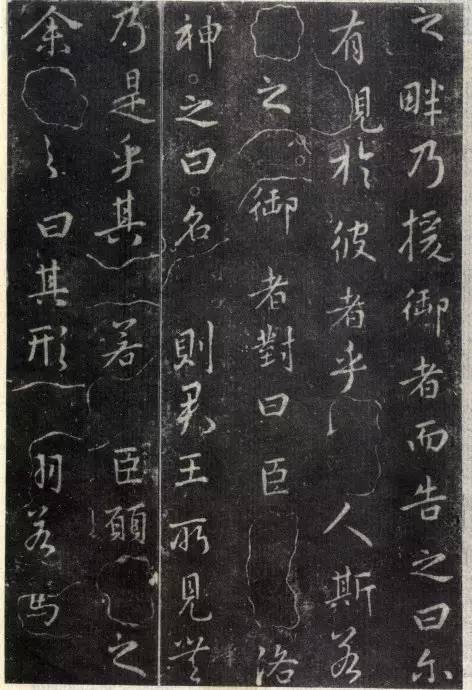 之畔乃援御者而告之曰尔
有見於彼者乎 人斯若
之 御者對曰臣 洛
神之曰名 則君王所見無
乃是乎其 若 臣願 之
余 之曰其形 羽若馬